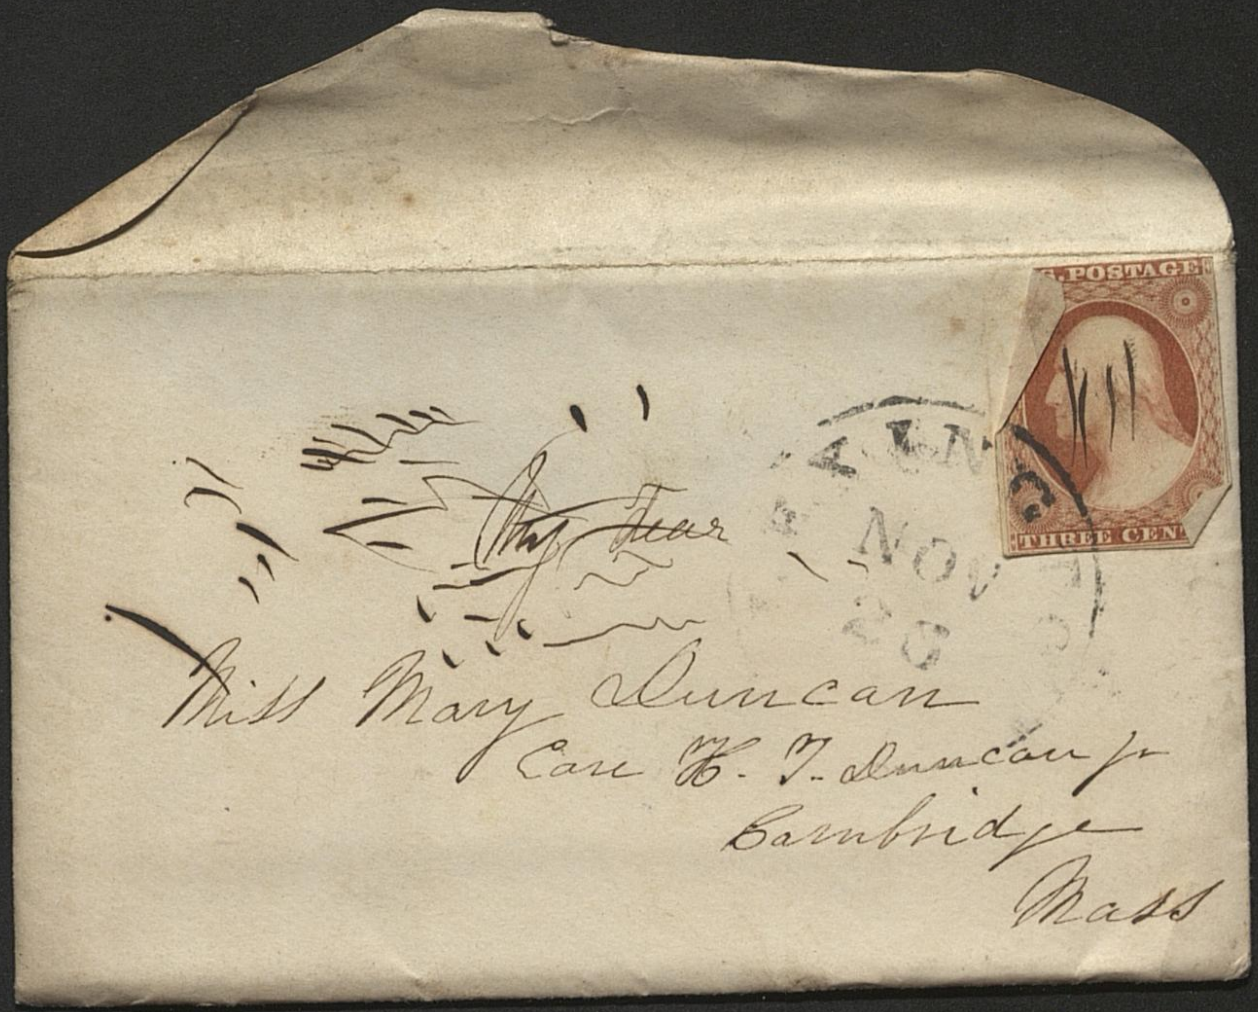 S. POSTAGE
THREE CEN
NOV
26
My Dear
Miss Mary Duncan
Care H. T. Duncan jr
Cambridge
Mass